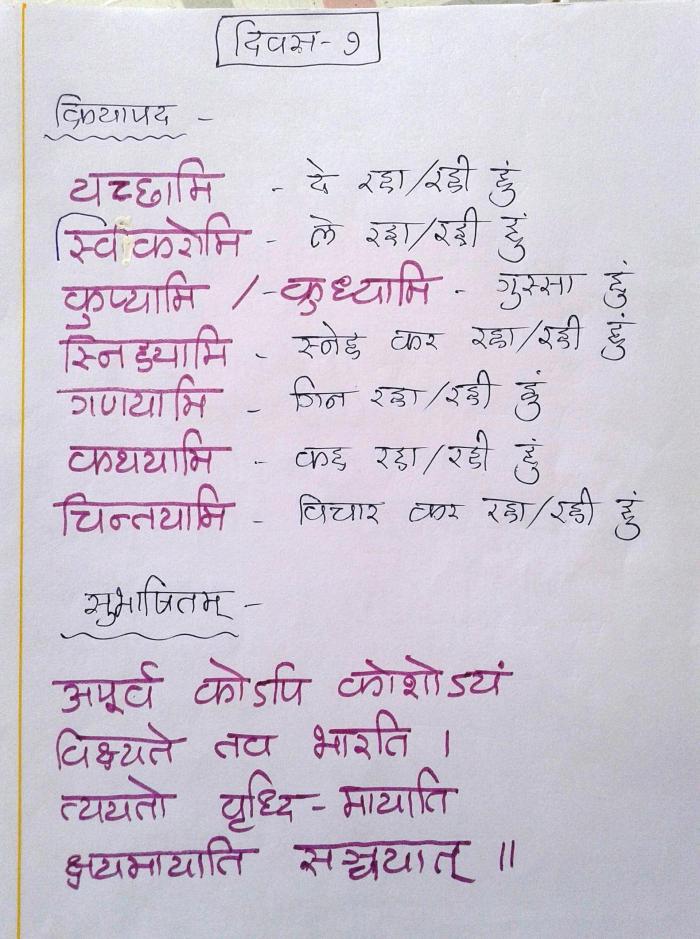 दिवस - ७
क्रियापद -
यच्छामि - दे रहा/रही हुं
स्विकरोमि - ले रहा/रही हुं
कुप्यामि / - क्रुध्यामि - गुस्सा हुं
स्निह्यामि - स्नेह कर रहा/रही हुं
गणयामि - गिन रहा/रही हुं
कथयामि - कह रहा/रही हुं
चिन्तयामि - विचार कर रहा/रही हुं
सुभाषितम् -
अपूर्व कोऽपि कोशोऽयं
विक्ष्यते तव भारति ।
त्ययतो वृध्दि - मायाति
क्षयमायाति सञ्चयात् ॥